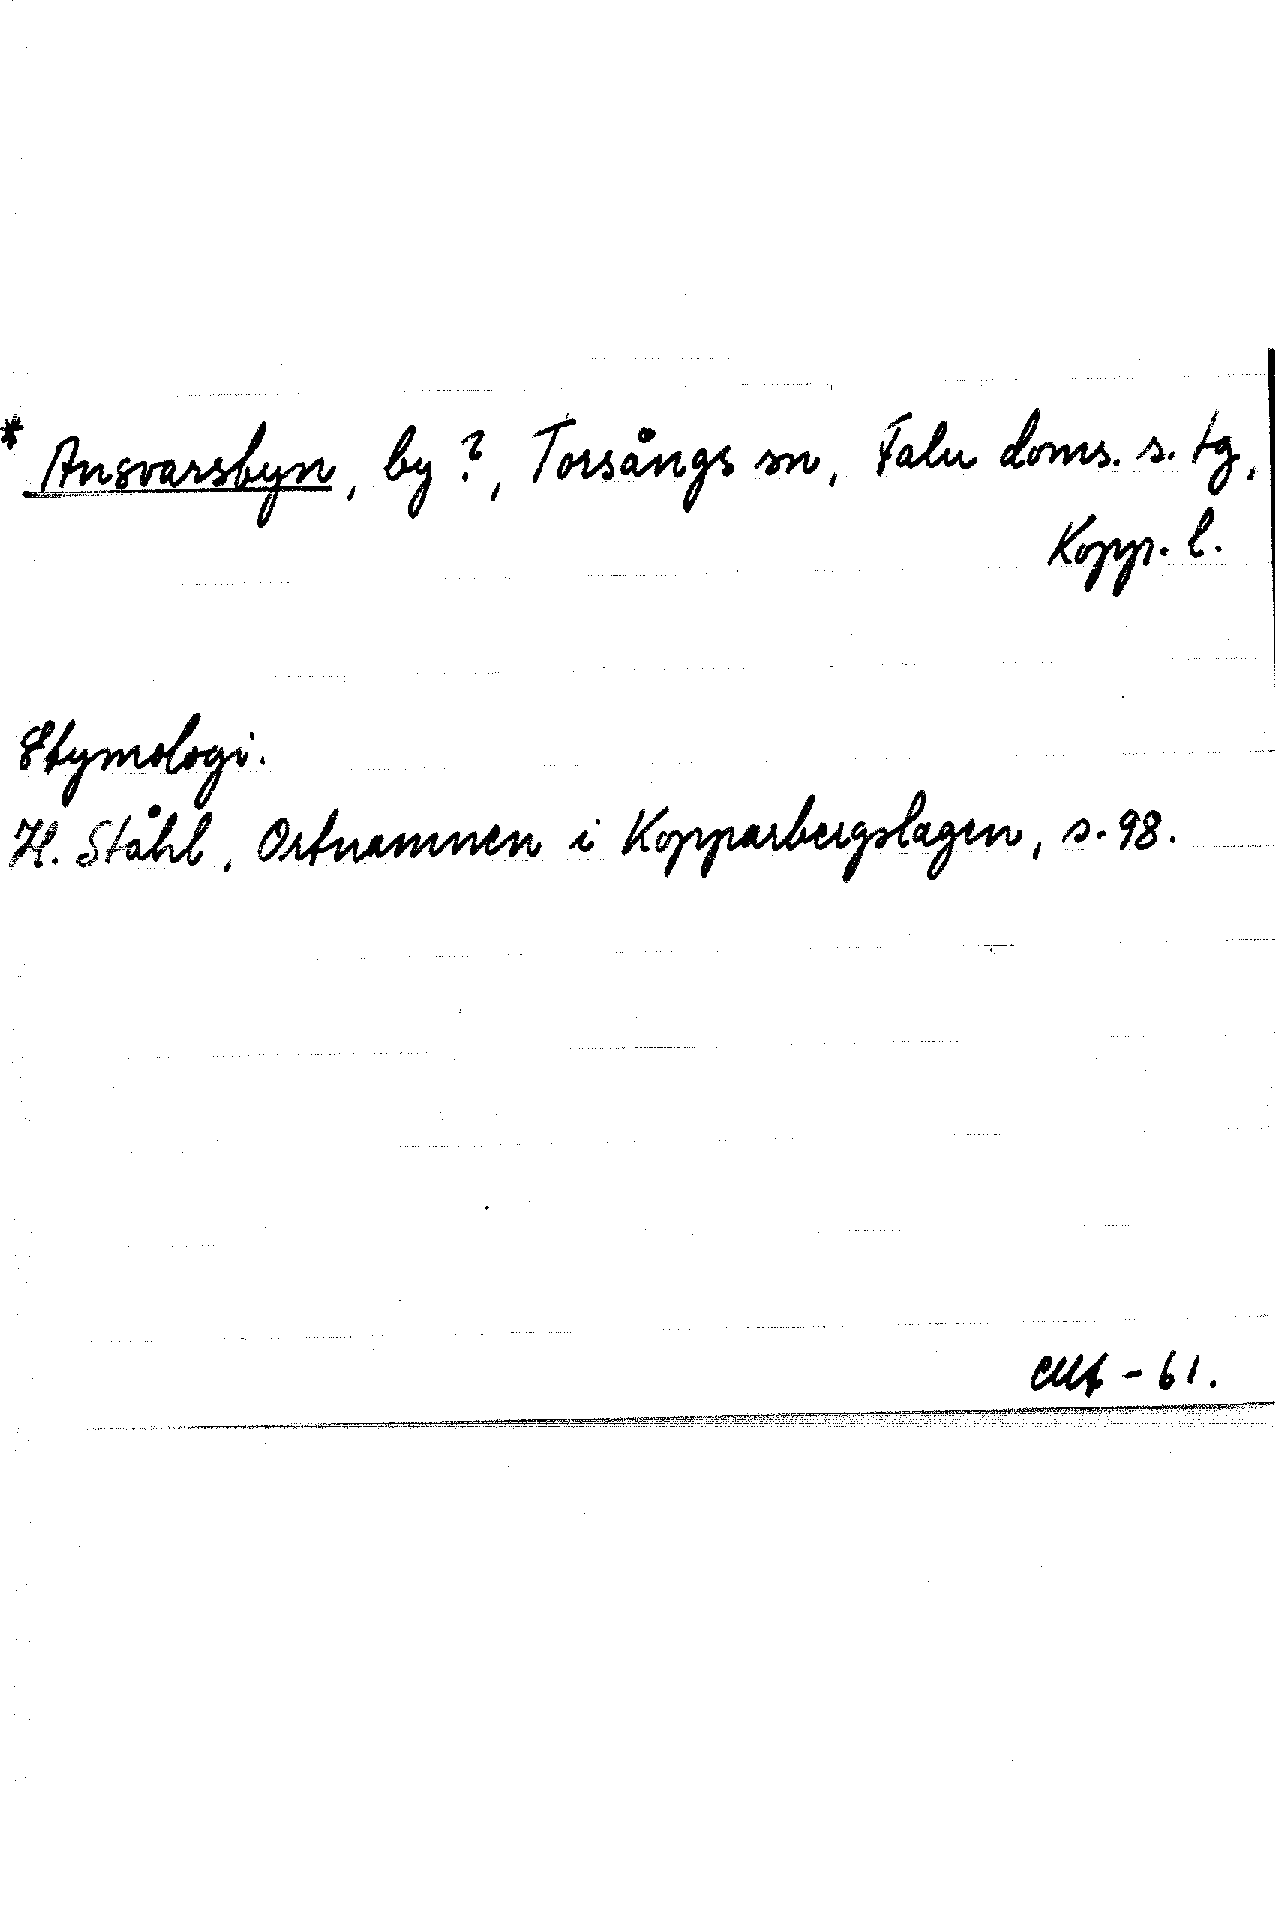 * Ansvarsbyn, by?, Torsångs sn, Falu doms. s. tg,
Kopp. l.
Etymologi.
H. Ståhl, Ortnamnen i Kopparbergslagen, s. 98.
-61.